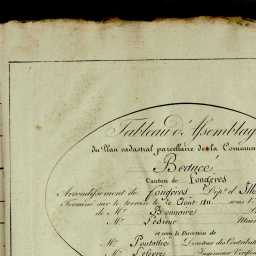 Tableau d'Assemblag
du Plan cadastral parcellaire de la Commun
Beaucé
Canton de Fougères
Arrondissement de Fougères Dépt. d'Ill
Terminé sur le terrain le 30 Août 1811 sous l'
de Mr. Bonnaire
Mr. Lesueur Mai
et sous la Direction de
Mr. Pontallié Directeur des Contributi
Mr. Leferre Ingénieur Vérifi